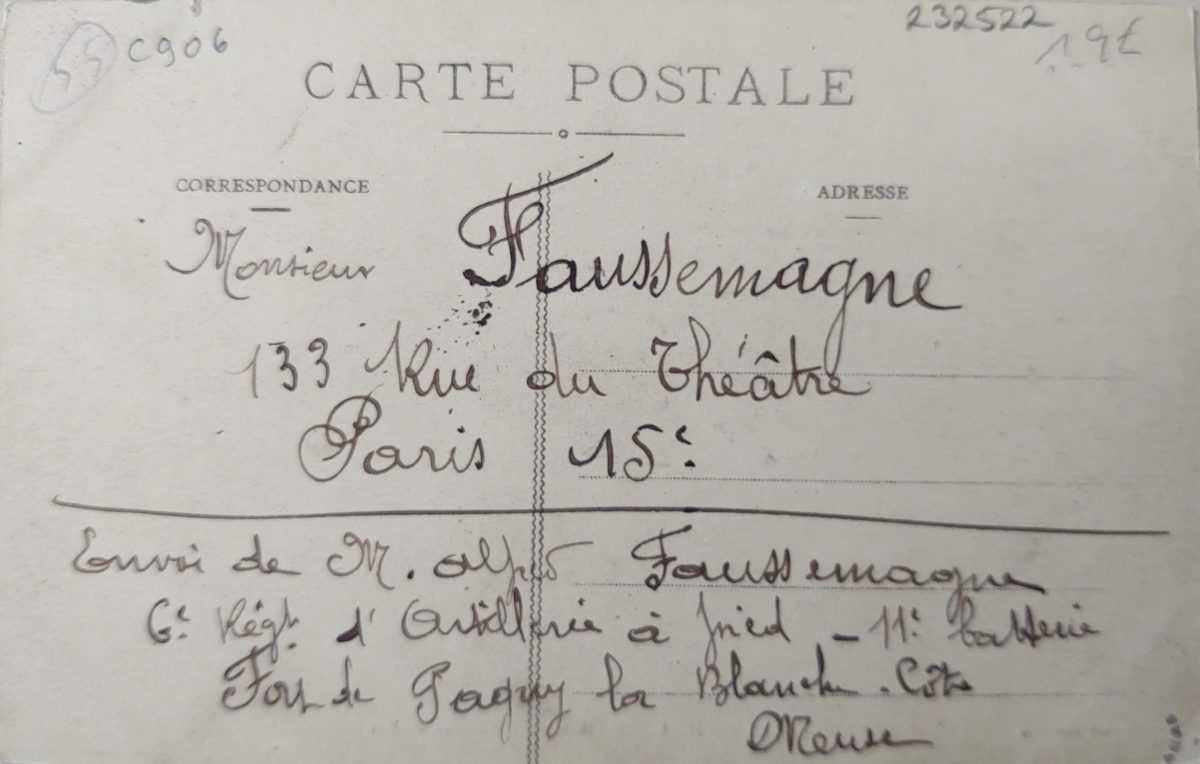 55 C906
232522
19€
CARTE POSTALE
CORRESPONDANCE
ADRESSE
Monsieur Faussemagne
133 Rue du Théâtre
Paris 15e
Envoi de M. Alfred Faussemagne
6e Régt d'Artillerie à pied - 11e batterie
Fort de Pagny la Blanche Côte
Meuse